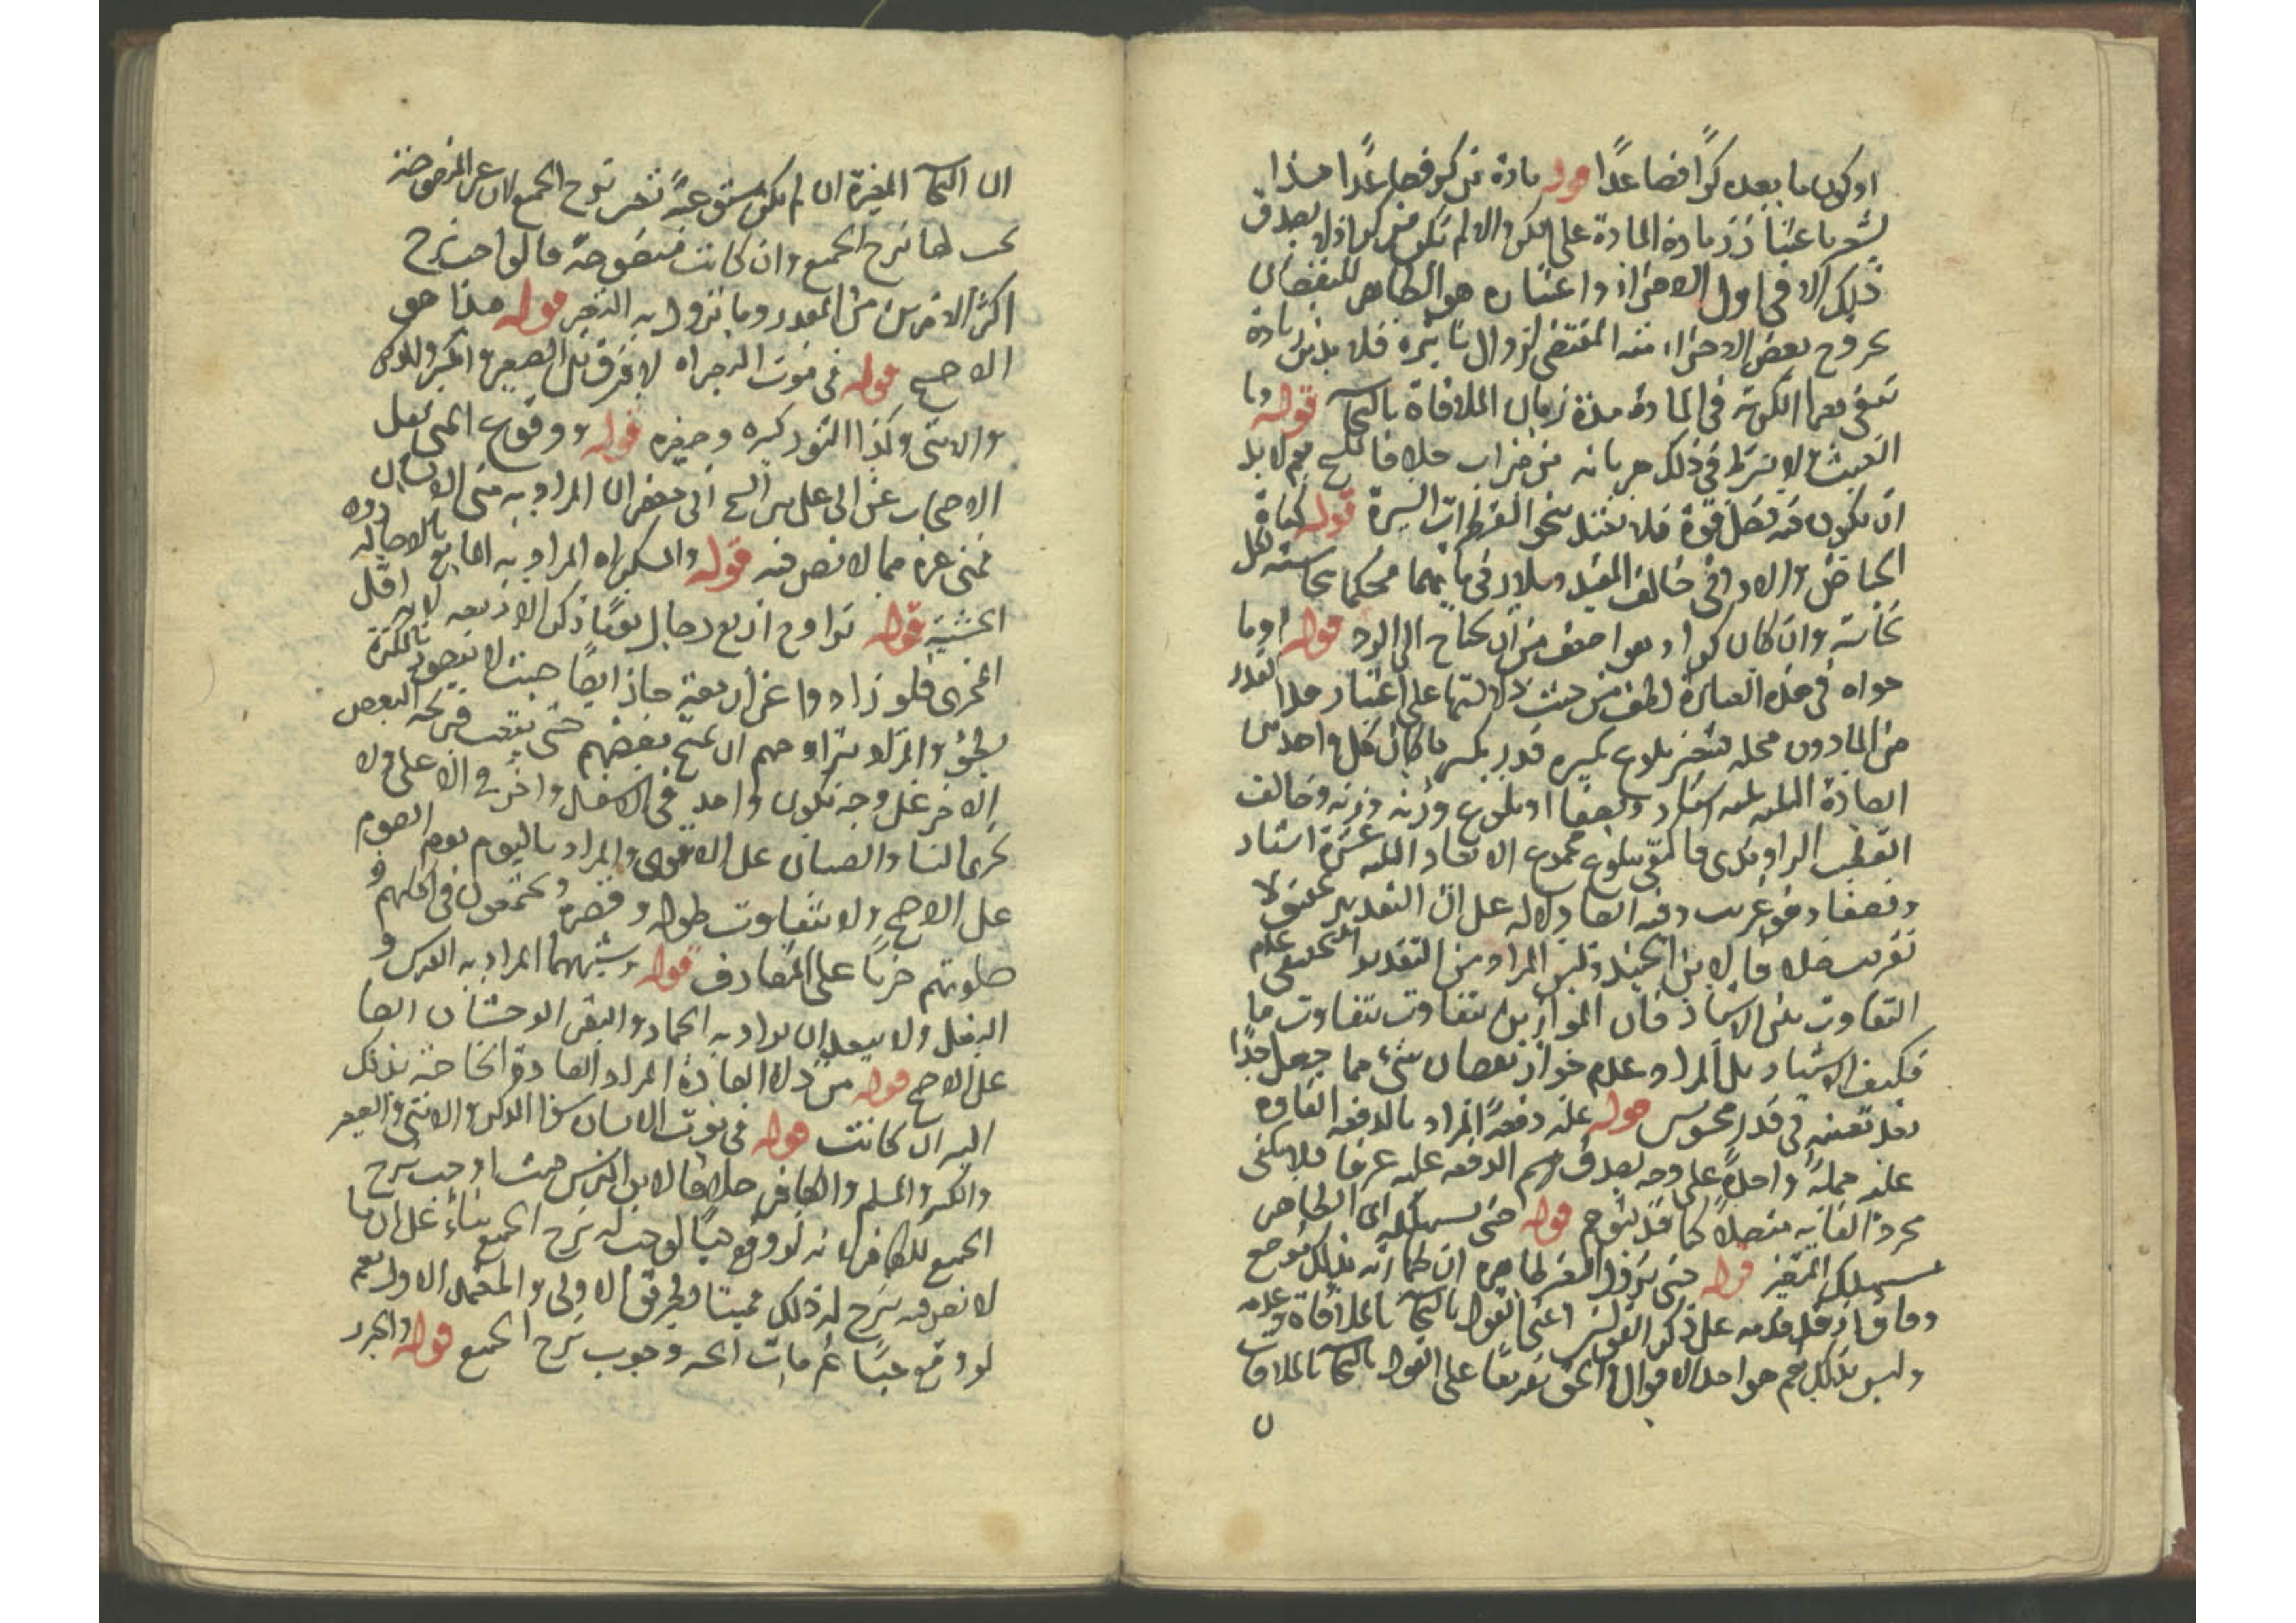 او كون ما بعده كرا فصاعدا قوله مادة من كر فصاعدا هذا
يشعر باعتبار زيادة المادة على الكر والا لم تكن من كر اذ لا يصدق
ذلك الا في اول الاحتراز واعتباره هو الظاهر للنقصان
بخروج بعض الاجزاء منه المقتضي لزوال تأثيره فلا بد من زيادة
تبقى معها الكرية في المادة مدة زمان الملاقاة بالنجاسة قوله وما
الغيث لا يشترط في ذلك جريانه من ميزاب خلافا للشيخ نعم لا بد
ان يكون فيه فضل قوة فلا يعتد بنحو القطرات اليسيرة قوله كمياه
الحياض والاواني خالف المفيد وسلار في مائهما فحكما بنجاسته بكل
نجاسة وان كان كرا وهو اضعف من ان يحتاج الى الرد قوله او ما
حواه في هذه العبارة لطف من حيث دلالتها على اعتبار هذا القدر
من الماء دون محله فيعتبر بلوغ تكسيره قدر تكسير ما كان كل واحد من
ابعاده الثلثة ثلثة اشبار ونصفا او بلوغ وزنه وزنه وخالف
القطب الراوندي فاكتفى ببلوغ مجموع الابعاد الثلثة عشرة اشبار
ونصفا وهو غريب وفيه ايضا دلالة على ان التقدير تحقيق لا
تقريب خلافا لابن الجنيد وليس المراد من التقدير التحقيقي عدم
التفاوت بين الاشبار فان الموازين تتفاوت بتفاوت ما
فكيف الاشبار بل المراد عدم جواز نقصان شيء مما جعل حدا
بعد تعينه في قدر محسوس قوله عليه دفعة المراد بالدفعة القاؤه
عليه جملة واحدة على وجه يصدق اسم الدفعة عليه عرفا فلا يكفي
مجرد القائه متصلا كما قد يتوهم قوله حتى يستهلكه اي الطاهر
يستهلك المتغير قوله حتى يزول التغير ظاهره ان طهارته بذلك موضع
وفاق اذ قد قدمه على ذكر القولين اعني القول بالنجاسة بالملاقاة وعدمه
وليس بذلك نعم هو احد الاقوال والحق تفريعا على القول بالنجاسة بالملاقات
ان النجاسة المغيرة ان لم يكن مستوعبة نحو نزح الجميع لان غير المنصوصة
يجب لها نزح الجميع وان كانت منصوصة فالواجب نزح
اكثر الامرين من المقدر وما يزول به التغير قوله هذا هو
الاصح قوله في موت الدجراه لا فرق بين الصغير والكبير والذكر
والانثى وكذا الثور كبيره وصغيره قوله ووقوع المني نقل
الاصحاب عن ابي علي بن الشيخ ابي جعفر ان المراد به مني الانسان
فمني غيره مما لا نص فيه قوله والمسكر المراد به المايع بالاصالة دون
الحشيشة قوله تراوح اربع رجال يوما ذكر الاربعة لانه اقل
المجزي فلو زادوا عن اربعة جاز ايضا حيث لا يعوق بالكثرة
بطؤ والمراد بتراوحهم ان يمتح بعضهم حتى يتعب فيريحه البعض
الاخر على وجه يكون واحد في الاسفل واخر في الاعلى ولا
يجزي النساء والصبيان على الاقوى والمراد باليوم يوم الصوم
على الاصح ولا يتفاوت طوله وقصره ويجتمعون في اكلهم و
صلوتهم جريا على المتعارف قوله وشبههما المراد به الفرس و
البغل ولا يبعد ان يراد به الحمار والبقر الوحشيان ايضا
على الاصح قوله من دلاء العادة المراد العادة الخاصة بذلك
البئر ان كانت قوله في موت الانسان سواء الذكر والانثى والصغير
والكبير والمسلم والكافر خلافا لابن ادريس حيث اوجب نزح
الجميع للكافر لانه لو وقع حيا لوجب له نزح الجميع بناء على ان ما
لا نص فيه ينزح له ذلك فميتا بطريق الاولى والمعتمد الاول نعم
لو وقع حيا ثم مات اتجه وجوب نزح الجميع قوله والجرد